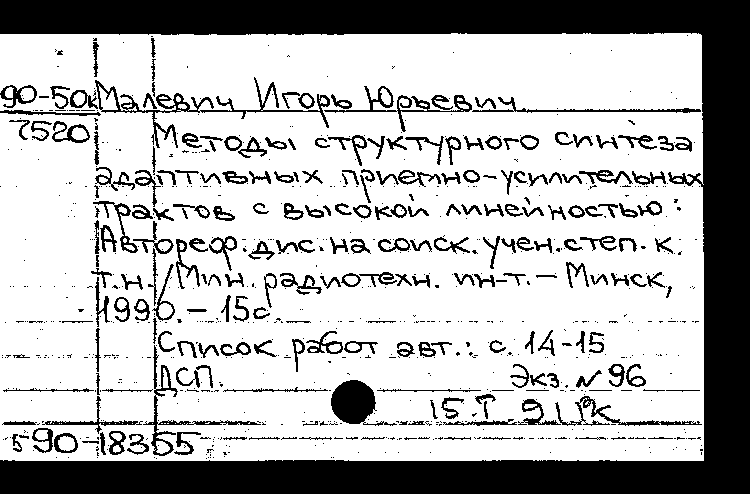 90-50к Малевич, Игорь Юрьевич.
7520 Методы структурного синтеза
адаптивных приемно-усилительных
трактов с высокой линейностью:
Автореф. дис. на соиск. учен. степ. к.
т.н. / Мин. радиотехн. ин-т. - Минск,
1990. - 15с.
Список работ авт.: с. 14-15
ДСП. Экз. № 96
15.I.91
590-18355